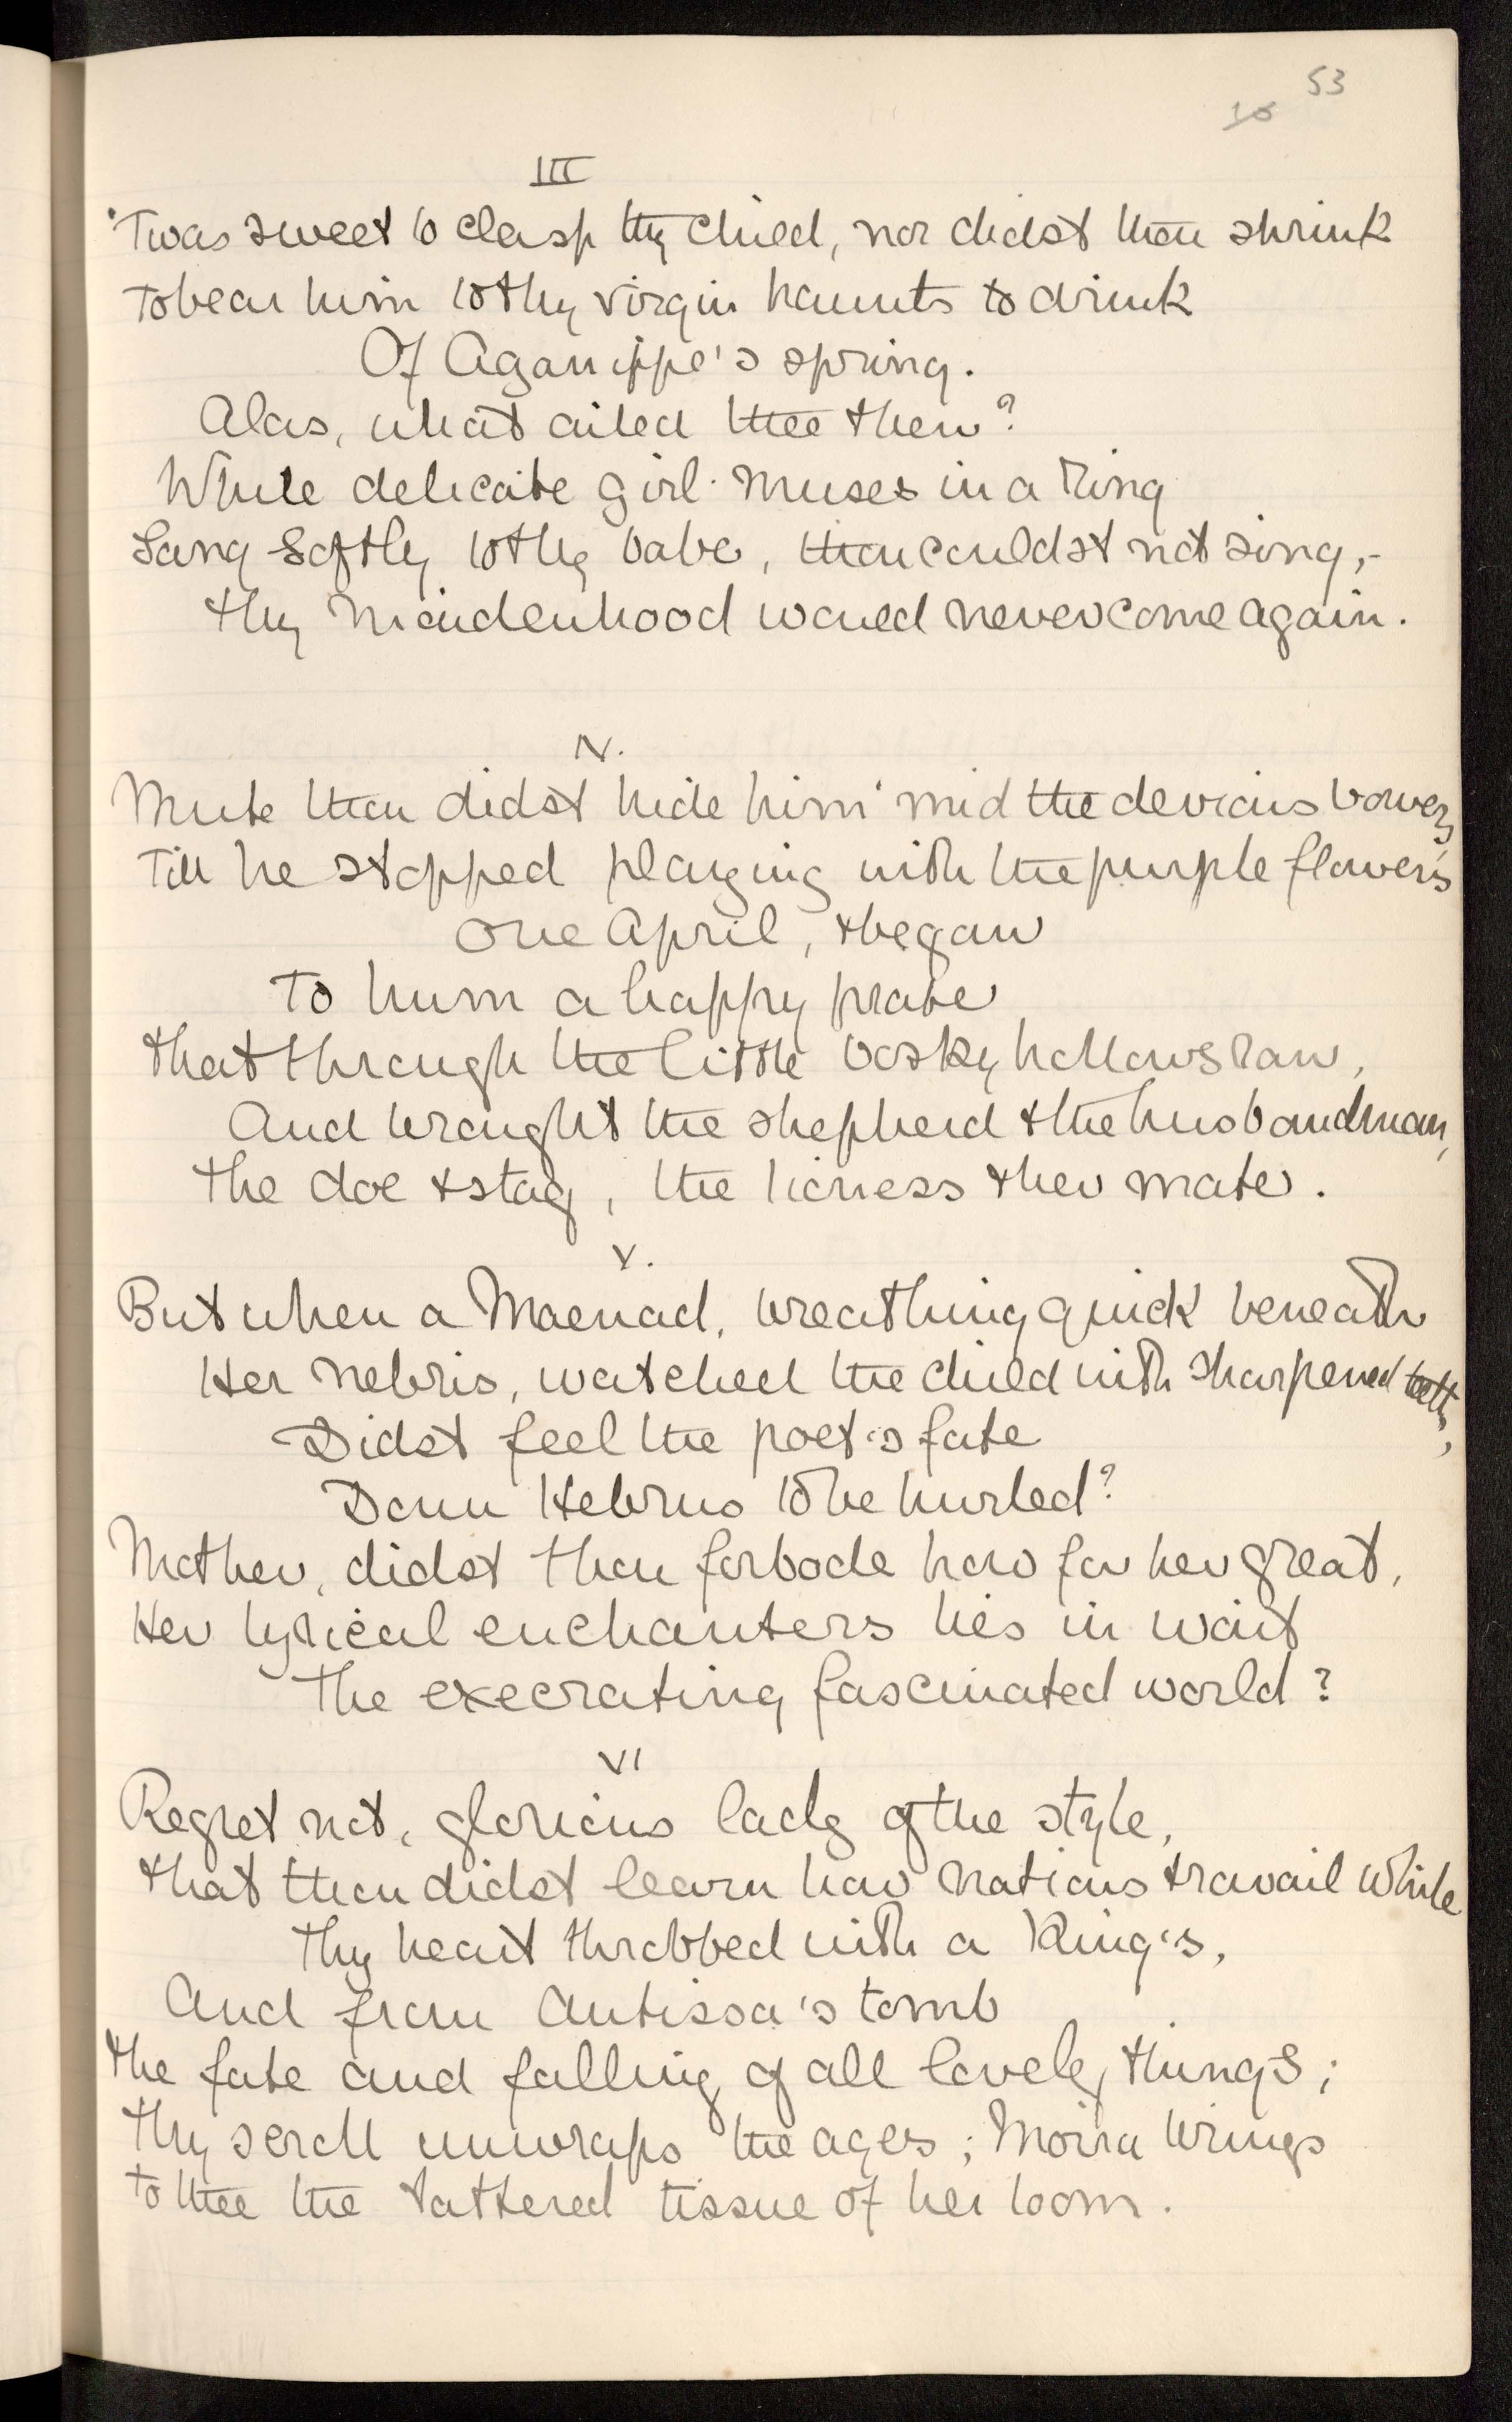 53
18
III
'Twas sweet to clasp thy child, nor didst thou shrink
To bear him to thy virgin haunts to drink
Of Aganippe's spring.
Alas, what ailed thee then?
While delicate girl-Muses in a ring
Sang softly to thy babe, thou couldst not sing,-
Thy maidenhood would never come again.
IV.
Mute thou didst hide him 'mid the devious bowers,
Till he stopped playing with the purple flowers
One April, & began
To hum a happy prate
That through the little bosky hollows ran,
And brought the shepherd & the husbandman,
The doe & stag, the lioness & her mate.
V.
But when a Maenad, breathing quick beneath
Her nebris, watched the child with sharpened teeth,
Didst feel the poet's fate
Down Hebrus to be hurled?
Mother, didst thou forbode how for her great,
Her lyrical enchanters lies in wait
The execrating fascinated world?
VI
Regret not, glorious lady of the style,
That thou didst learn how nations travail while
Thy heart throbbed with a King's,
And from Antissa's tomb
The fate and falling of all lovely things;
Thy scroll unwraps the ages; Moira brings
To thee the tattered tissue of her loom.